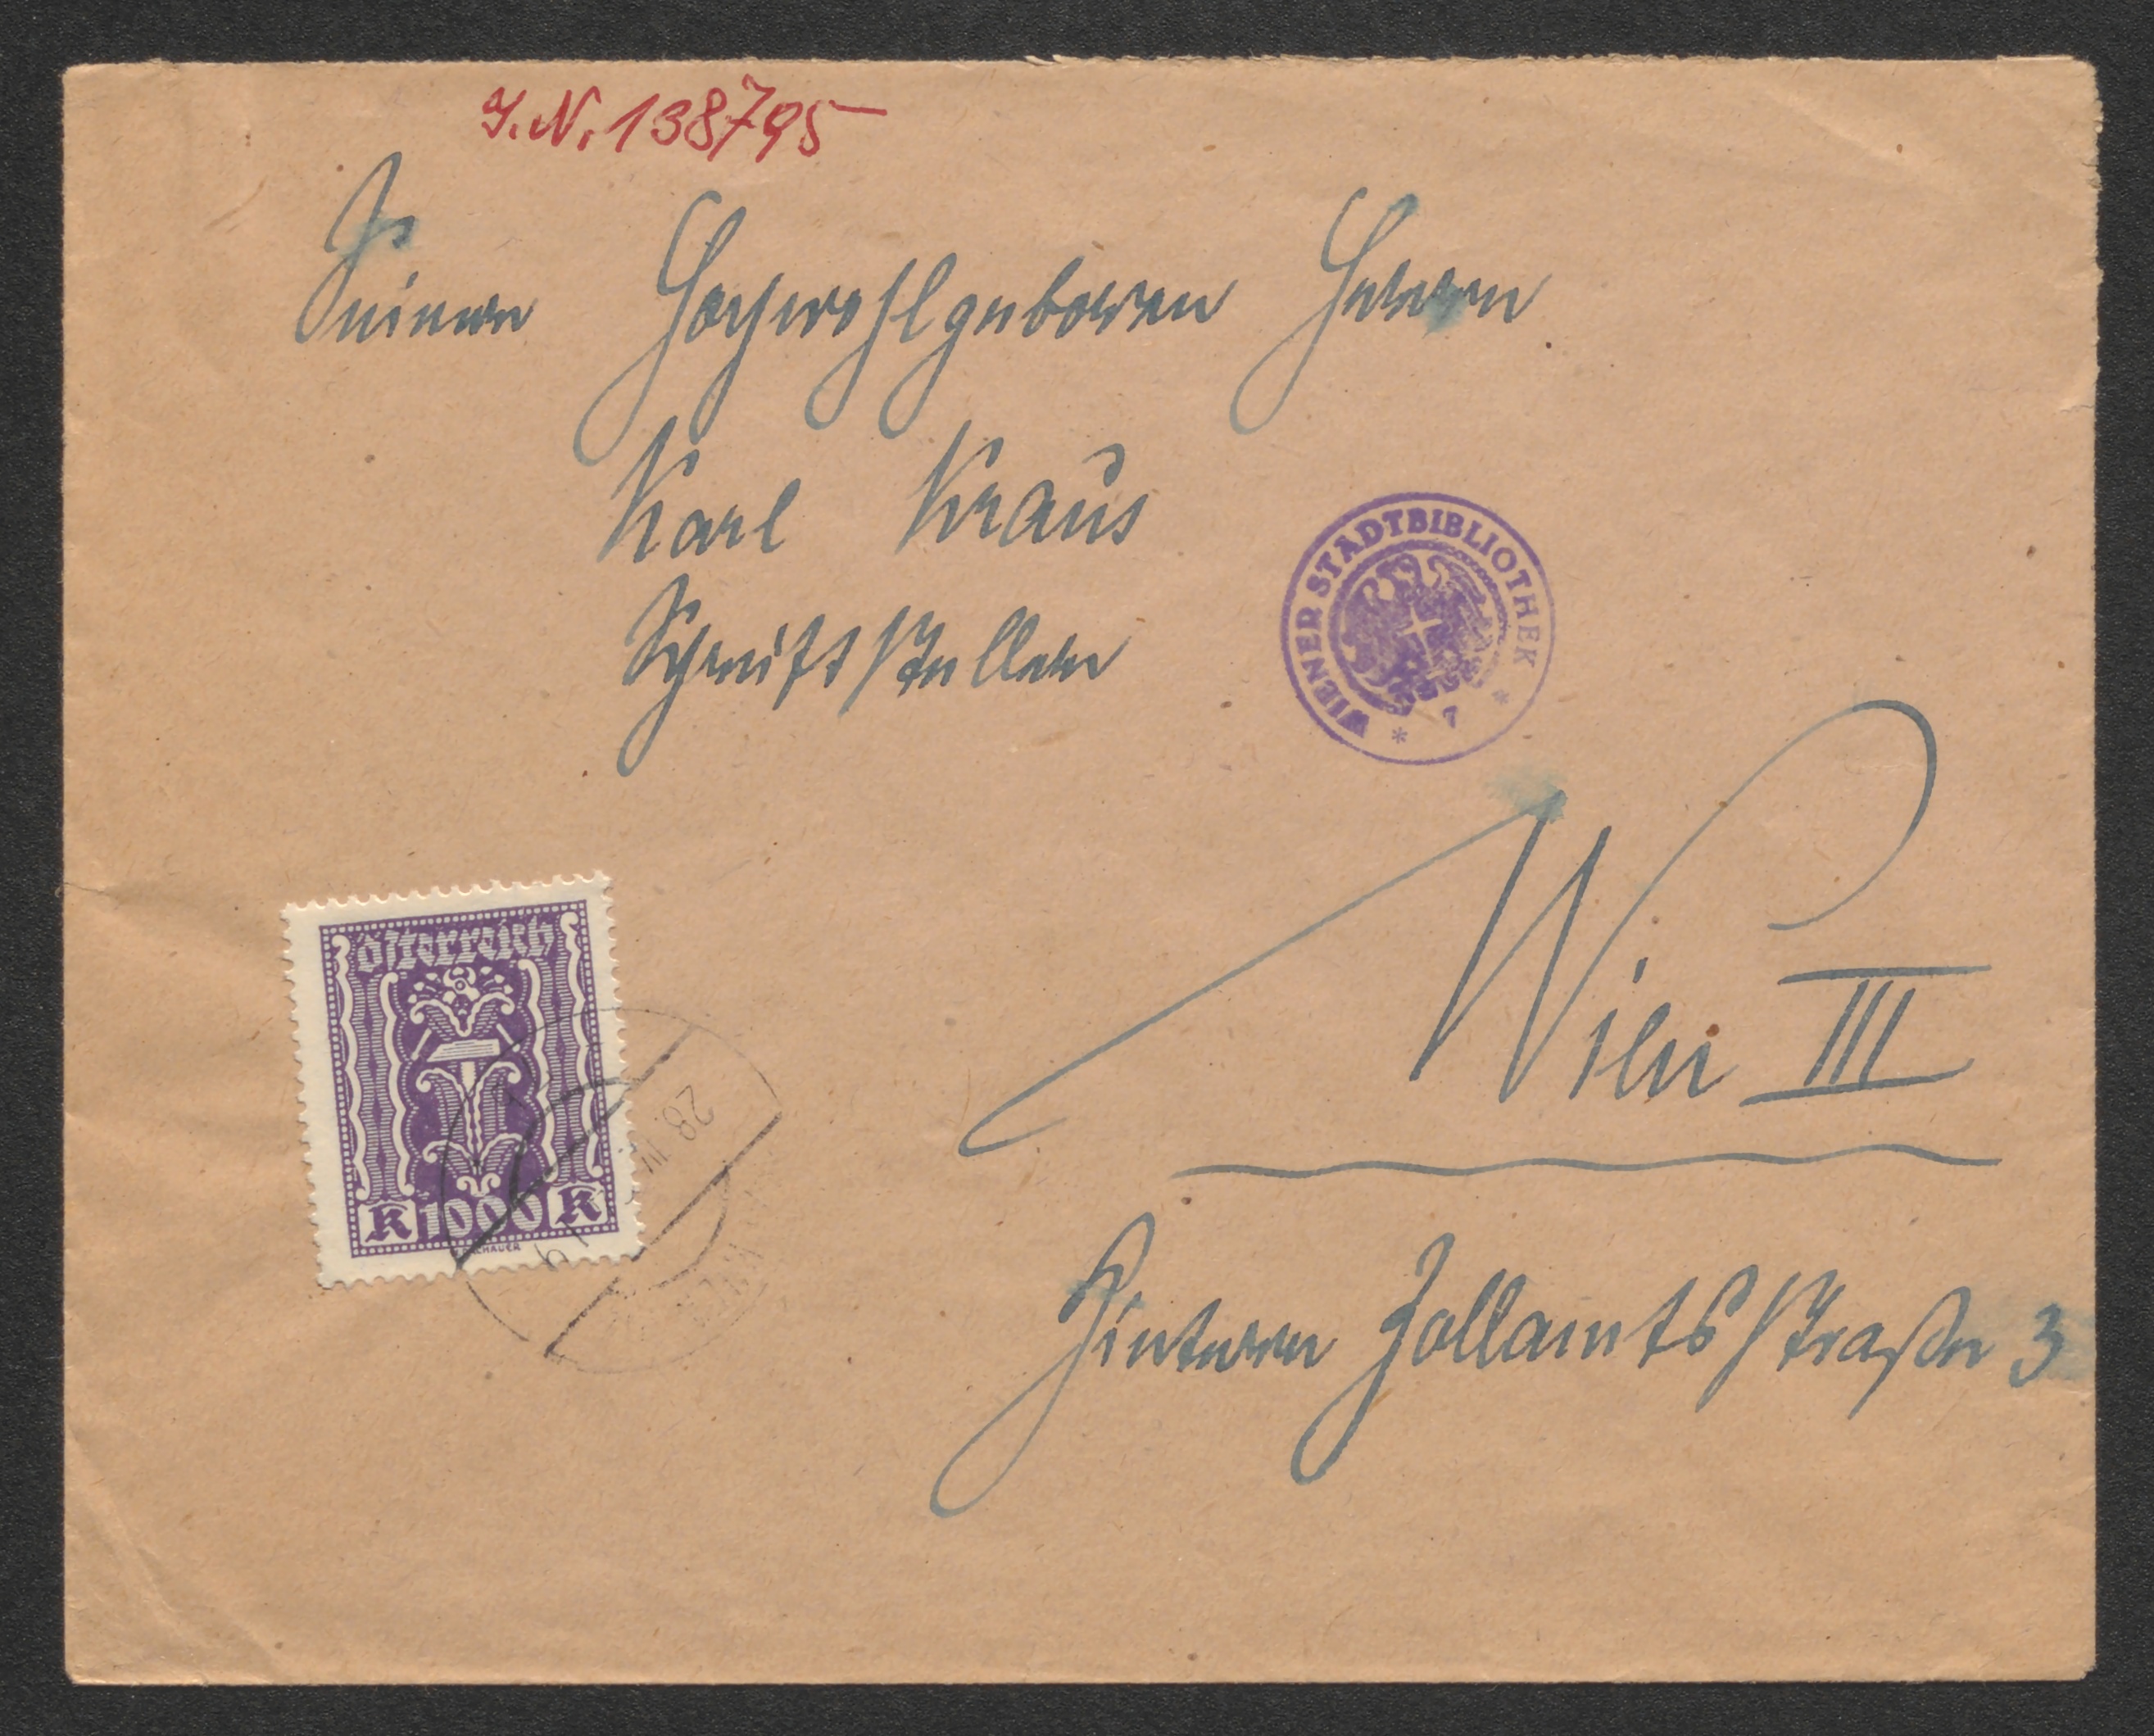 I.N. 138795
Seiner Hochwohlgeboren Herrn
Karl Kraus
Schriftsteller
WIENER STADTBIBLIOTHEK
* 7 *
Wien III
Hintere Zollamtsstraße 3
Österreich
K 1000 K
28. IV